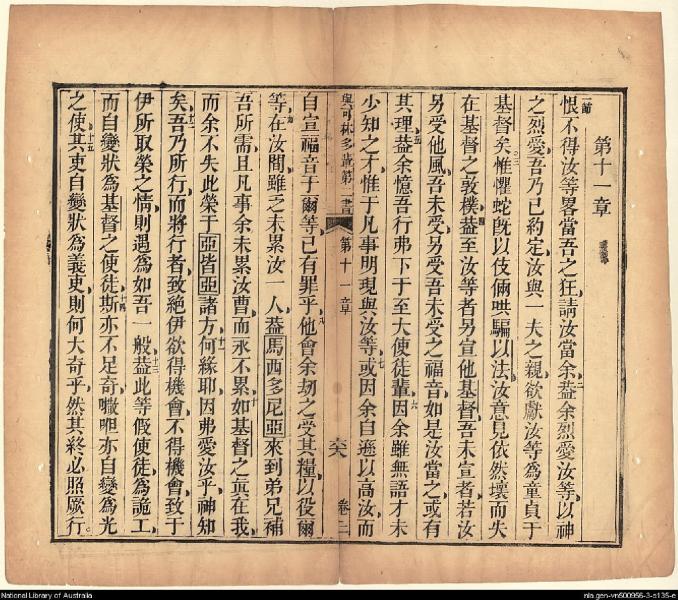 第十一章
節一恨不得汝等畧當吾之狂請汝當余葢余烈愛汝等以神
之烈愛吾乃已約定汝與一夫之親欲獻汝等為童貞于
基督矣惟懼蛇旣以伎倆哄騙以法汝意見依然壞而失
在基督之敦樸葢至汝等者另宣他基督吾未宣者若汝
另受他風吾未受另受吾未受之福音如是汝當之或有
其理葢余憶吾行弗下于至大使徒輩因余雖無語才未
少知之才惟于凡事明現與汝等或因余自遜以高汝而
與可林多輩第二書 第十一章 卷二
自宣福音于爾等已有罪乎他會余劫之受其糧以役爾
等在汝間雖乏未累汝一人葢馬西多尼亞來到弟兄補
吾所需且凡事余未累汝曹而永不累如基督之真在我
而余不失此榮于亞皆亞諸方何緣耶因弗愛汝乎神知
矣吾乃所行而將行者致絕伊欲得機會不得機會致于
伊所取榮之情則遇為如吾一般葢此等假使徒為詭工
而自變狀為基督之使徒斯亦不足奇
亦自變為光
之使其吏自變狀為義吏則何大奇乎然其終必照厥行
National Library of Australia
nla.gen-vn500956-3-s135-e